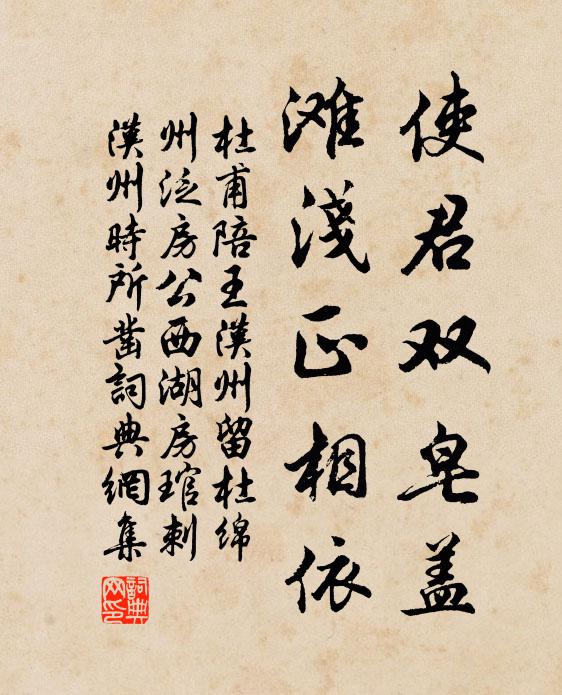 使君双皂盖
滩淺正相依
杜甫陪王漢州留杜绵
州泛房公西湖房琯刺
漢州時所凿詞典網集
詞典
网印